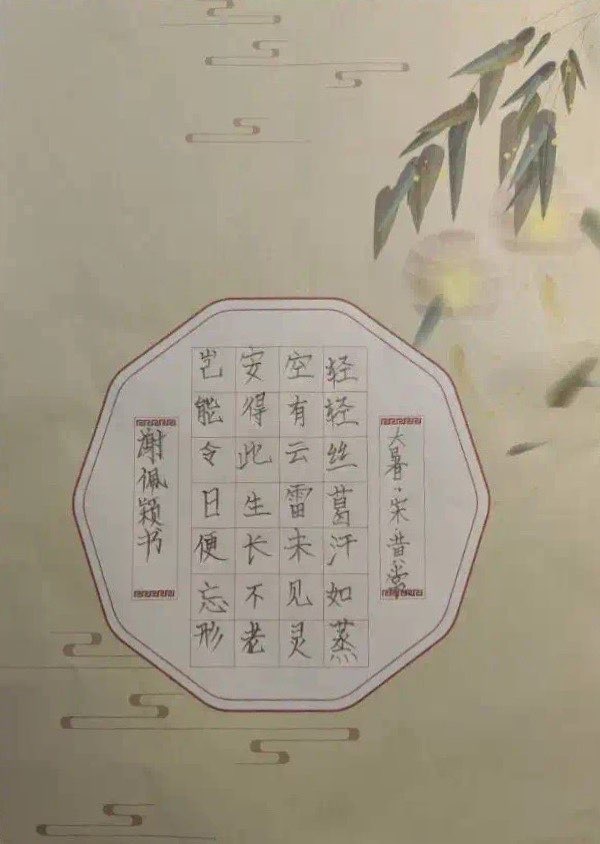 大暑·宋·昔常
轻轻丝葛汗如蒸
空有云雷未见灵
安得此生长不老
岂能令日便忘形
谢佩颖书